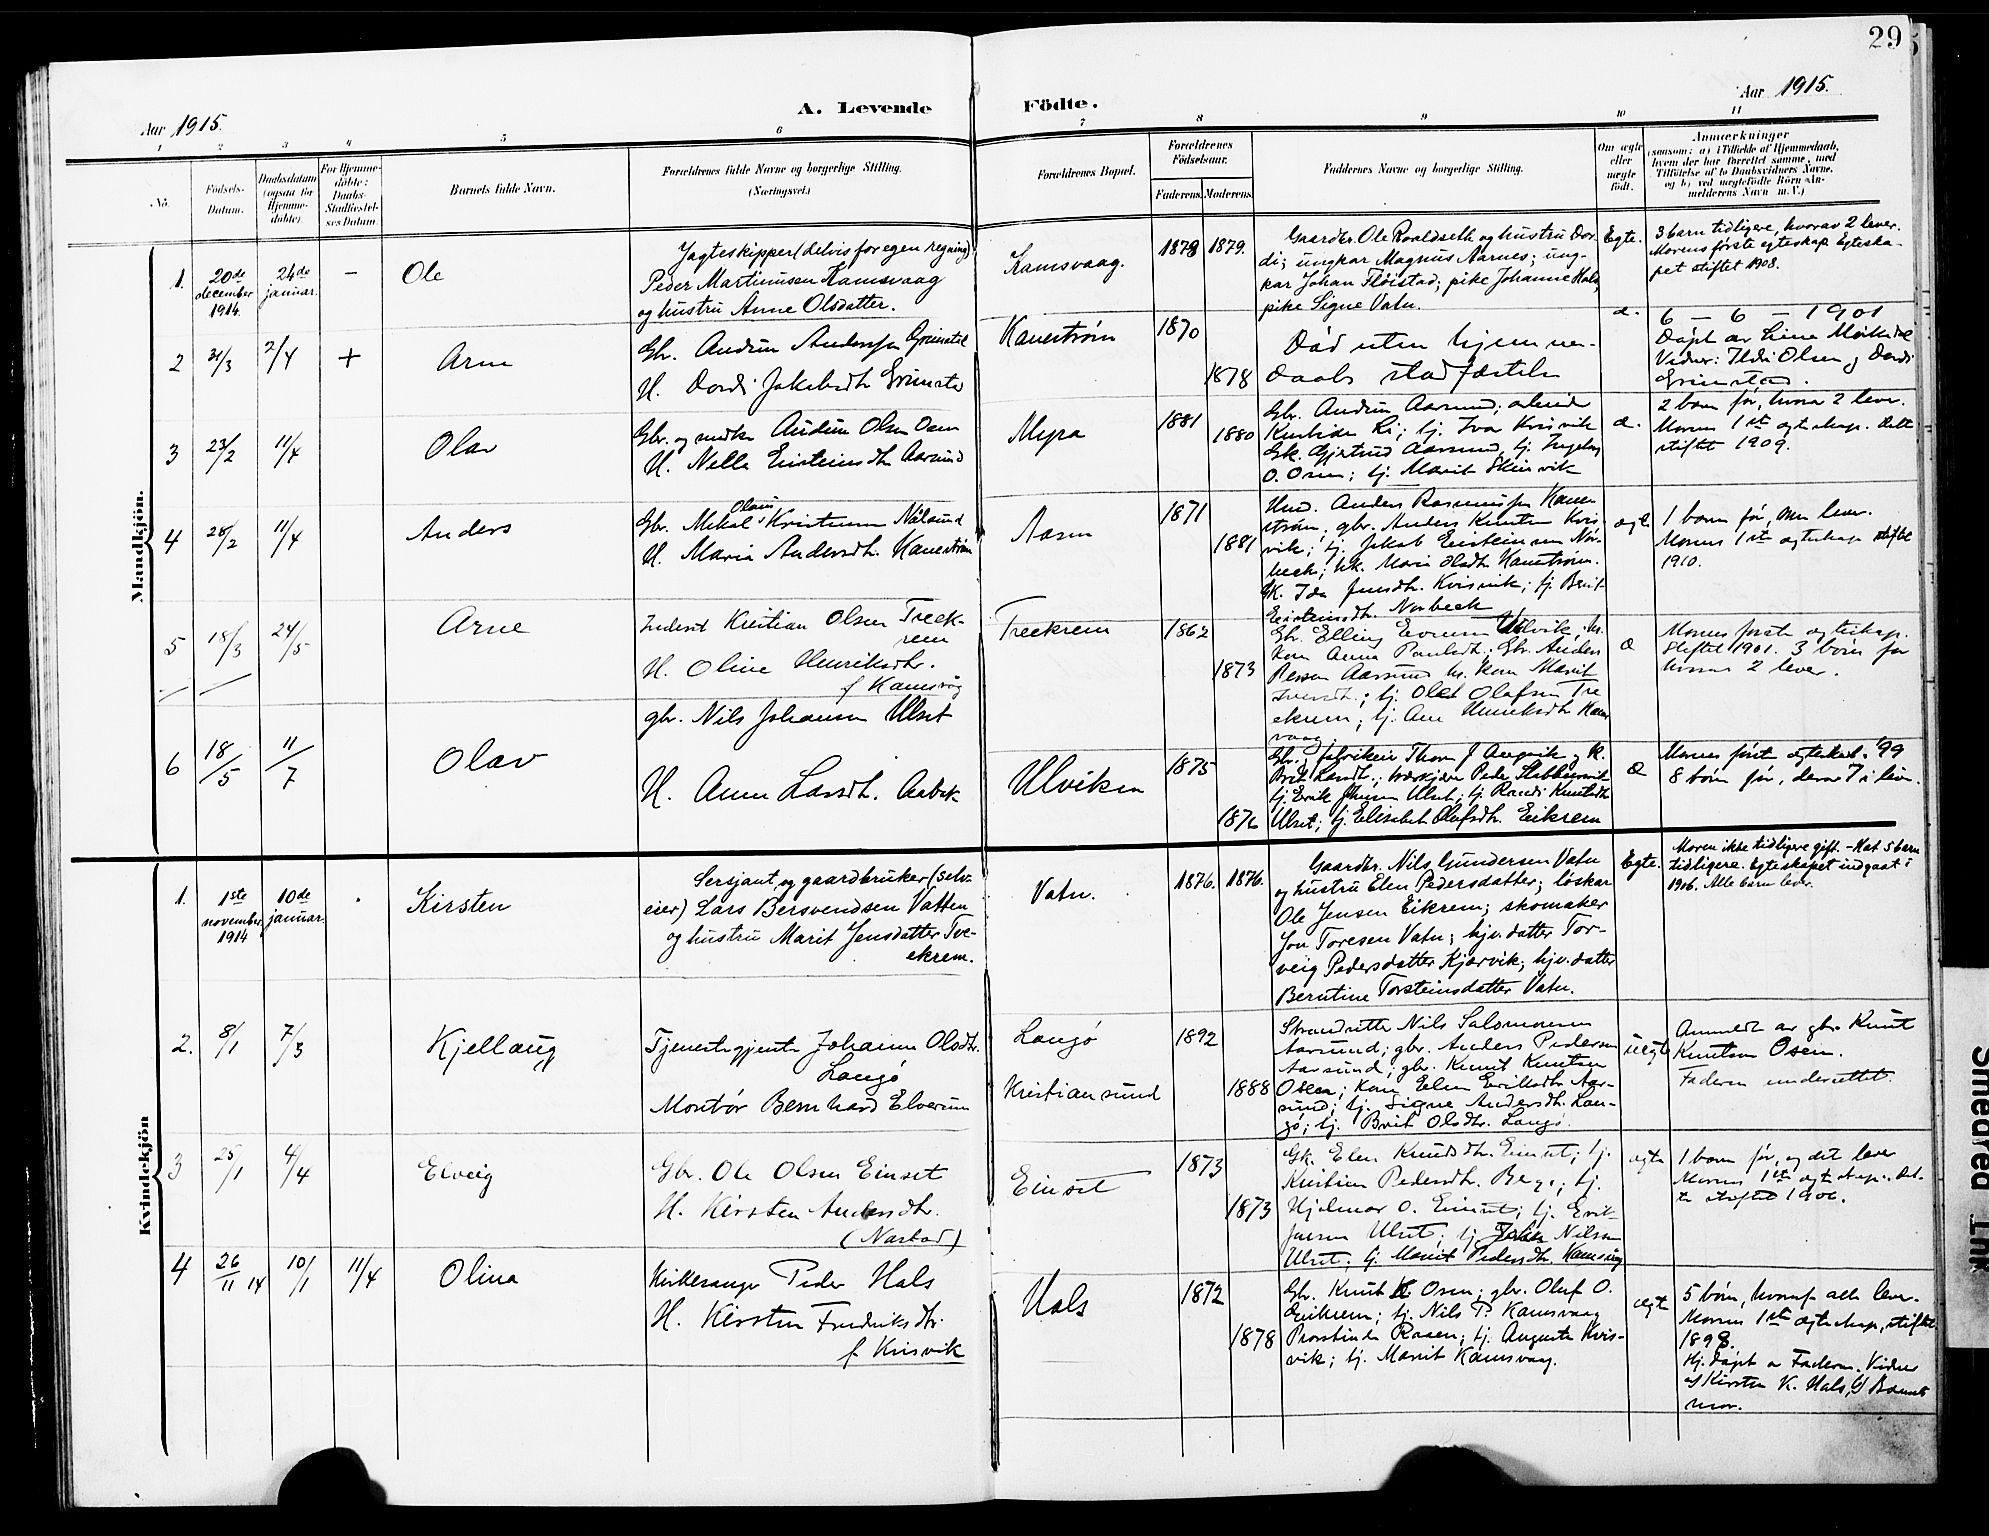 29
Aar 1915.
A. Levende Födte.
Aar 1915.
1 2 3 4 5 6 7 8 9 10 11
No.
Födsels-
Datum.
Daabsdatum
(ogsaa for
Hjemme-
døbte).
For Hjemme-
döbte:
Daabs
Stadfæstel-
ses Datum.
Barnets fulde Navn.
Forældrenes fulde Navne og borgerlige Stilling.
(Næringsvei.)
Forældrenes Bopæl.
Forældrenes
Födselsaar.
Faderens. Moderens.
Faddernes Navne og borgerlige Stilling.
Om ægte
eller
uægte
födt.
Anmærkninger
(saasom: a) i Tilfælde af Hjemmedaab,
hvem der har forrettet samme, med
Tilföielse af to Daabsvidners Navne,
og b) ved uægtefödte Börn An-
melderens Navn m. V.)
Mandkjön.
1. 20de december 1914. 24de januar. - Ole
Jagteskipper (delvis for egen regning)
Peder Martinussen Kamsvaag
og hustru Anne Olsdatter.
Kamsvaag. 1878 1879.
Gaardbr. Ole Roaldseth og hustru Dor-
di; ungkar Magnus Aarnes; ung-
kar Johan Flöistad; pike Johanne Hals,
pike Signe Vatn.
Egte.
3 barn tidligere, hvorav 2 lever.
Morens første egteskap. Egteska-
pet stiftet 1908.
2 31/3 2/4 + Arne
Gbr. Andreas Anderssen Grimstad
H. Dordi Jakobsdtr. Grimstad
Kanestrøm 1870 1878
Död uten hjemme-
daabs stadfæstelse
6 - 6 - 1901
Døpt av Line Melkild
Vidner: Ildri Olsen og Dordi
Grimstad.
3 23/2 11/4 Olav
Gbr. og smed Audun Olsen Osen
H. Nella Eristeinsdtr. Aarsund
Myra 1881 1880
Gbr. Andreas Aarsund; arbeider
tj. Ivar Kvisvik
Gk. Gjertrud Aarsund, tj. Ingeborg
O. Osen; tj. Marit Skinsvik
æ.
2 barn før, hvorav 2 lever.
Morens 1ste egteskap. Dette
stiftet 1909.
4 28/2 11/4 Anders
Olaus
Gbr. Mikal Kristiansen Nålsund
H. Maria Andersdtr. Kanestrøm
Aasen 1871 1881
Anders Rasmussen Kane-
strøm; gbr. Anders Knutsen Kvis-
vik; tj. Jakob Eristeinsen Nor-
beck; hk. Marie Olsdtr. Kanestrøm.
Gk. Ida Jensdtr. Kvisvik; tj. Berit
Eristeinsdtr. Norbeck
ægte
1 barn før, som lever.
Morens 1ste ægteskap stiftet
1910.
5 18/3 24/5 Arne
Inderst Kristian Olsen Treek-
rem
H. Oline Henriksdtr.
f. Kamsvåg
Treekrem 1862 1873
Gbr. Elling Evensen Ulvik, hs.
kone Anna Paulsdtr.; Gbr. Anders
Aarsund hs. kone Marit
Iversdtr.; tj. Olet Olafsen Tre-
ekrem; tj. Ane Henriksdtr. Kams-
vaag.
æ
Morens første ægteskap.
Stiftet 1901. 3 børn før
hvorav 2 lever.
6 18/5 11/7 Olav
gbr. Nils Johansen Ulset
H. Anne Larsdtr. Aarbek
Ulviken 1875 1876
Gbr. og fabrikeier Thore J Angvik og K.
Brit Larsdtr.; Peder Stokkesvik
tj. Erik Jensen Ulset; tj. Randi Knutsdtr.
Ulset; tj. Elisabet Olafsdtr. Eikrem
Æ
Morens første ægteskab. '99
8 børn før, derav 7 i live.
Kvindekjön
1. 1ste november 1914 10de januar. Kirsten
Sersjant og gaardbruker (selv-
eier) Lars Bersvendsen Vatten
og hustru Marit Jensdatter Tre-
ekrem.
Vatn. 1876. 1876.
Gaardbr. Nils Gundersen Vatn
og hustru Elen Pedersdatter; löskar
Ole Jensen Eikrem; skomaker
Jon Toresen Vatn; hjv. datter Tor-
veig Pedersdatter Kjørvik; hjv. datter
Berntine Torsteinsdatter Vatn.
Egte.
Moren ikke tidligere gift. - Hat 5 barn
tidligere. Egteskapet indgaat i
1906. Alle barn lever.
2. 8/1 7/3 Kjellaug
Tjenestegjente Johanna Olsdtr.
Langö
Montør Bernhard Elverum
Langö
Kristiansund
1892 1888
Strandsitter Nils Salomonsen
Aarsund; gbr. Anders Pedersen
Aarsund; gbr. Knut Knutsen
Osen; kone Elen Eriksdtr. Aar-
sund; tj. Signe Andersdtr. Lan-
gö; tj. Brit Olsdtr. Langö.
uegte
Anmeldt av gbr. Knut
Knutsen Osen.
Faderen underrettet.
3 25/1 4/4 Elveig
Gbr. Ole Olsen Einset
H. Kirsten Andersdtr.
(Nastad)
Einset 1873 1873
Gk. Elen Knudsdtr. Einset; tj.
Kristian Pedersdtr. Berge; tj.
Hjelmar O. Einset; tj. Erik
Jensen Ulset; tj. Nilsen
Ulset; tj. Marit Pedersdtr. Kamsvåg
egte
1 barn før, og det lever
Morens 1ste ægteskap. Det-
te stiftet 1906.
4 26/11 14 10/1 11/4 Olina
Kirkesanger Peder Hals
H. Kirsten Fredriksdtr.
f. Kvisvik
Hals 1872 1878
Gbr. Knut K Osen; gbr. Oluf O.
Øeikrem; tj. Nils P. Kamsvaag
Prestinde Rosen; tj. Auguste Kvis-
vik; tj. Marit Kamsvaag.
ægte
5 børn, hvoraf alle lever.
Morens 1ste ægteskap, stiftet
1898.
Hj. døpt av Faderen. Vidner
Kirsten K. Hals, Barnets
mor.